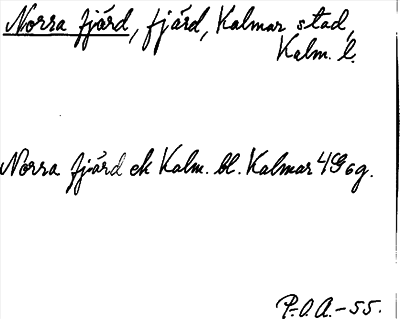 Norra fjärd, fjärd, Kalmar stad,
Kalm. l.
Norra fjärd ek Kalm. bl. Kalmar 4G6g.
P.-O.A.-55.